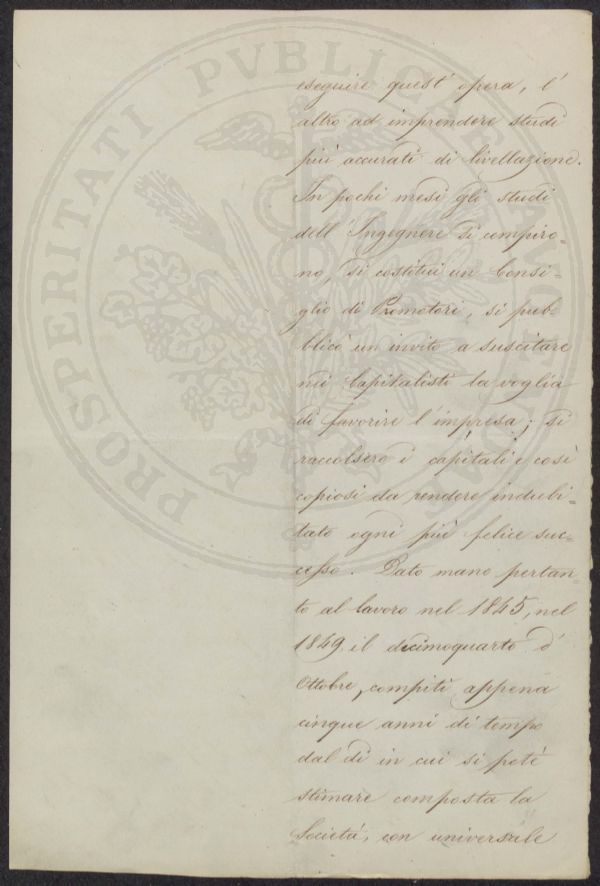 eseguire quest' opera, l'
altro ad imprendere studi
più accurati di livellazione.
In pochi mesi gli studi
dell' Ingegnere si compiro-
no, si costituì un Consi-
glio di Promotori, si pub-
blicò un invito a suscitare
nei Capitalisti la voglia
di favorire l'impresa; si
raccolsero i capitali e così
copiosi da rendere indubi-
tato ogni più felice suc-
cesso. Dato mano pertan-
to al lavoro nel 1845, nel
1849 il decimoquarto d'
Ottobre, compiti appena
cinque anni di tempo
dal dì in cui si potè
stimare composta la
Società, con universale
PROSPERITATI PVBLICAE